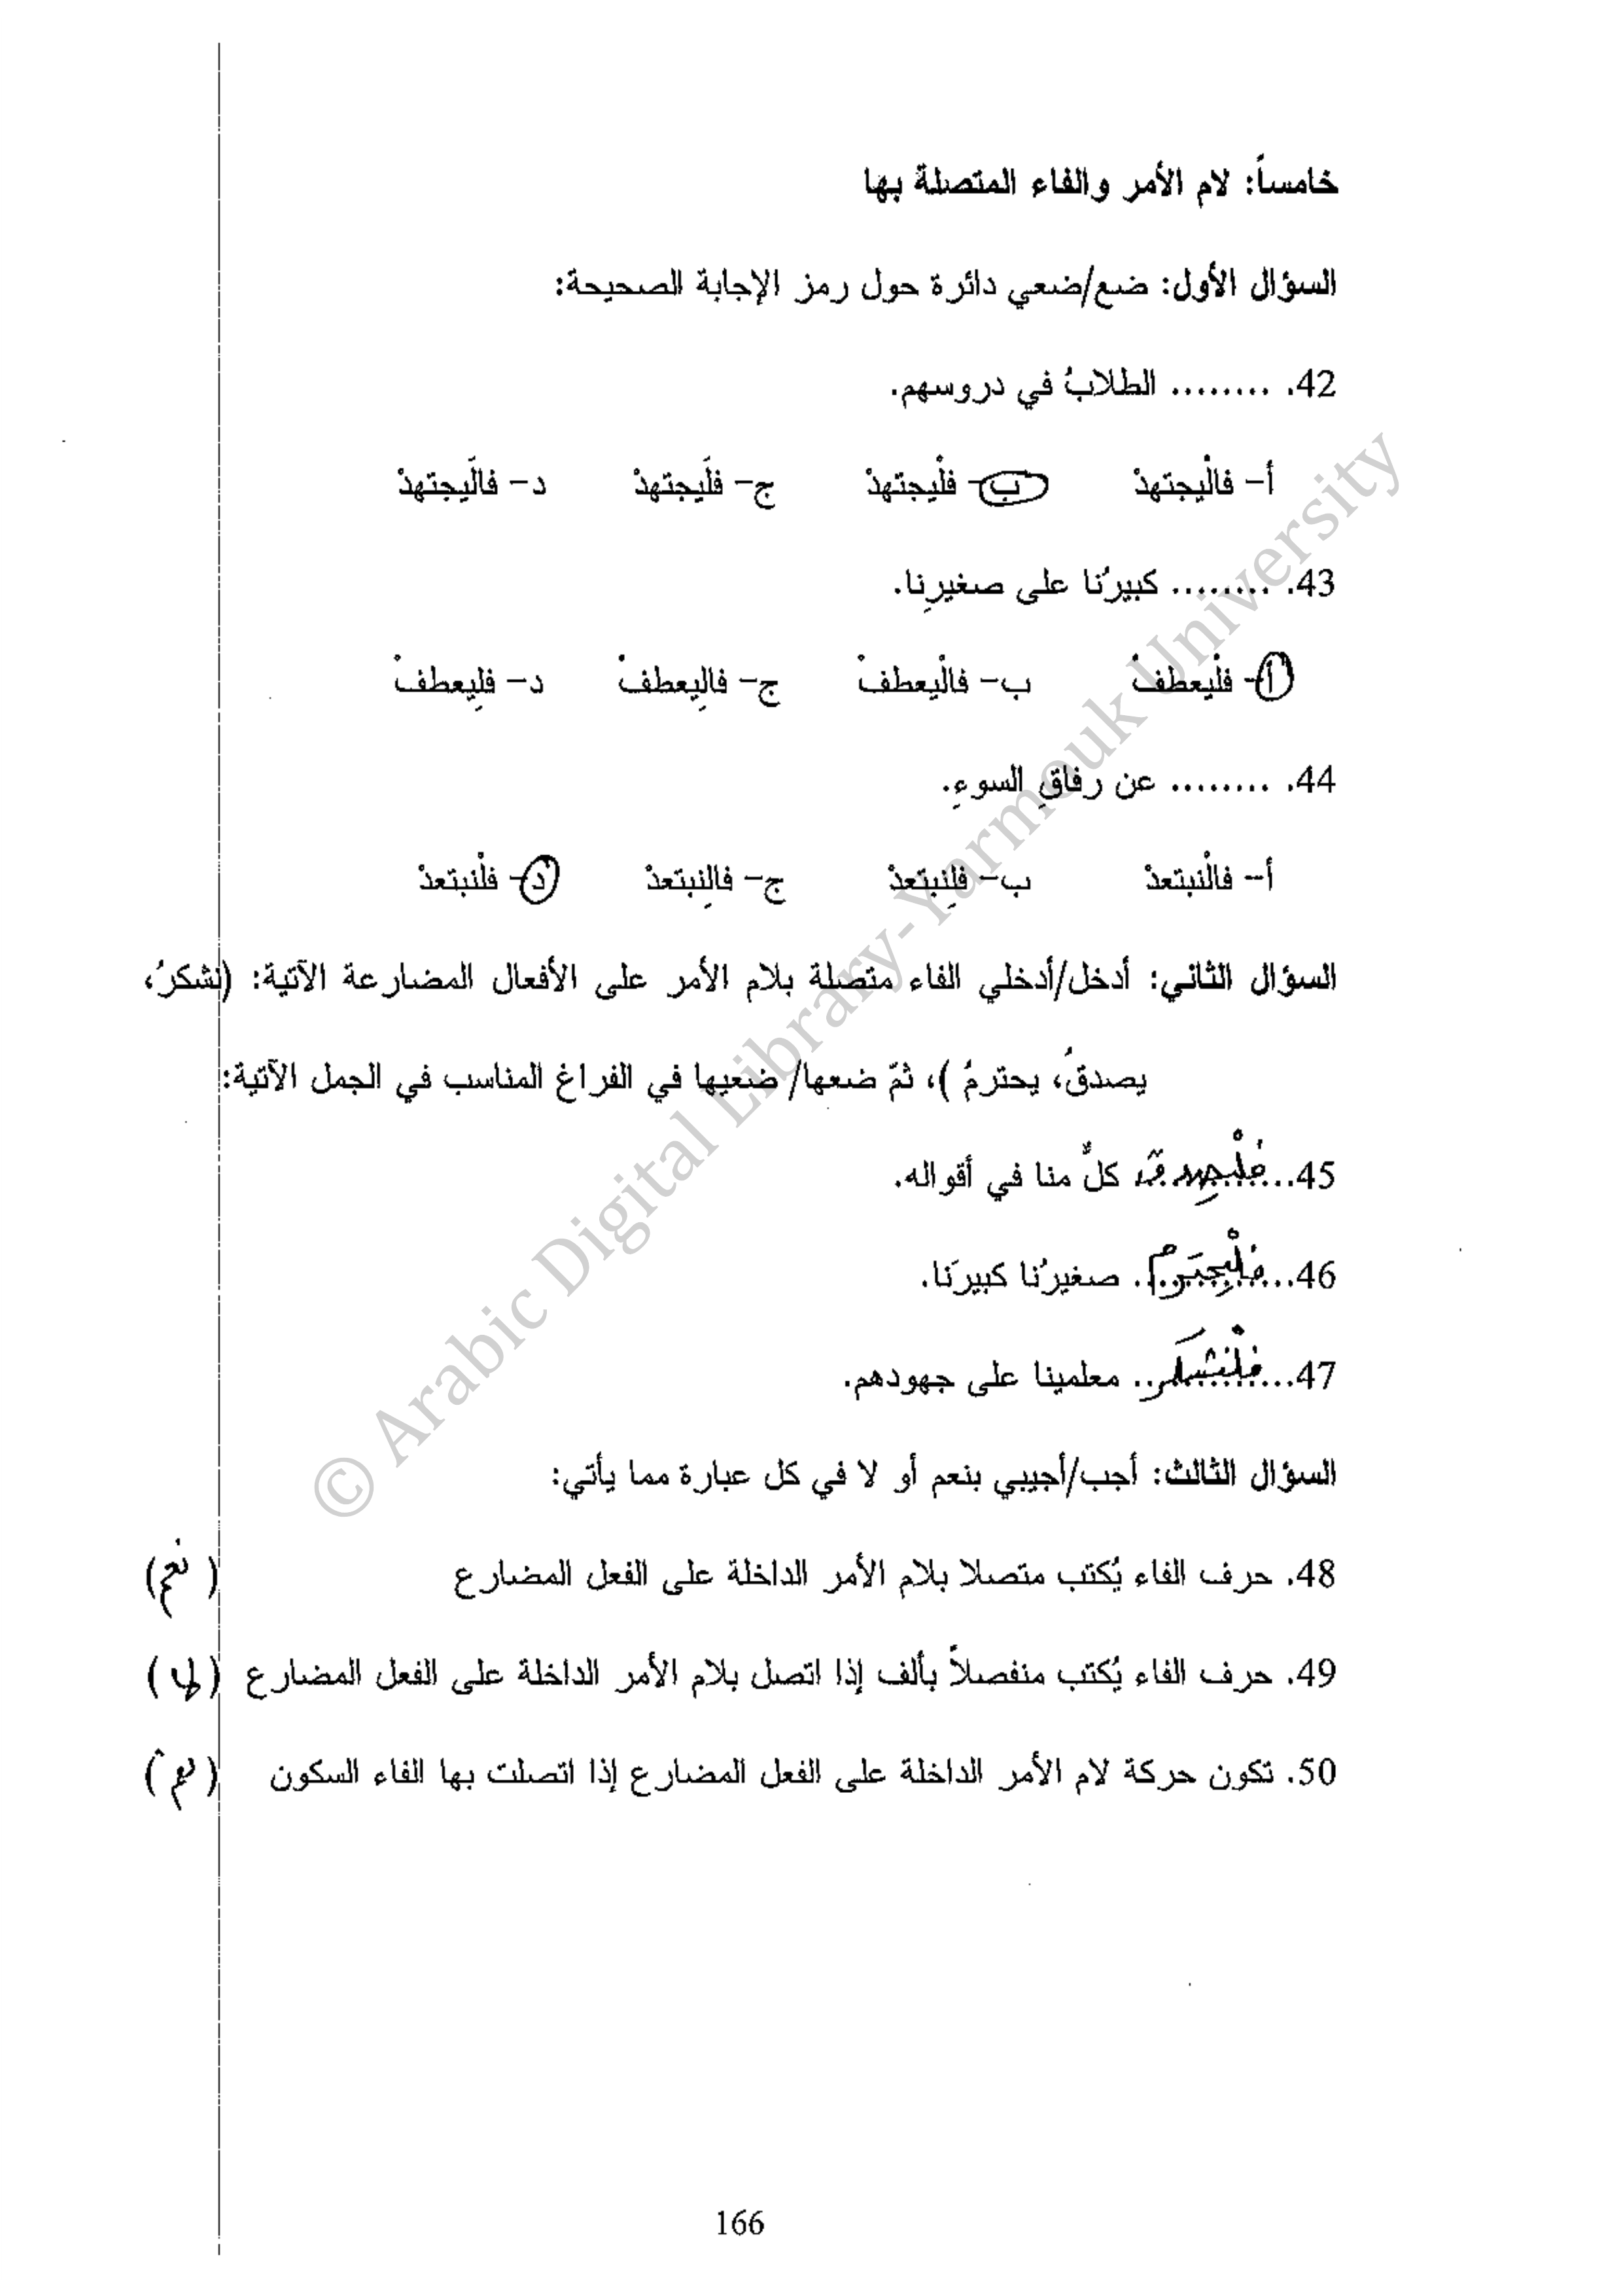 خامساً: لام الأمر والفاء المتصلة بها
السؤال الأول: ضع/ضعي دائرة حول رمز الإجابة الصحيحة:
42. ........ الطلابُ في دروسهم.
أ- فالْيجتهدْ ب- فلْيجتهدْ ج- فلَيجتهدْ د- فالَيجتهدْ
43. ........ كبيرُنا على صغيرِنا.
أ- فلْيعطفْ ب- فالْيعطفْ ج- فالِيعطفْ د- فلِيعطفْ
44. ........ عن رفاقِ السوءِ.
أ- فالْنبتعدْ ب- فلِنبتعدْ ج- فالِنبتعدْ د- فلْنبتعدْ
السؤال الثاني: أدخل/أدخلي الفاء متصلة بلام الأمر على الأفعال المضارعة الآتية: (نشكرُ،
يصدقُ، يحترمُ )، ثمّ ضعها/ ضعيها في الفراغ المناسب في الجمل الآتية:
45...فلْيصدق.. كلٌ منا في أقواله.
46...فلْيحترم.. صغيرُنا كبيرَنا.
47...فلْنشكر.. معلمينا على جهودهم.
السؤال الثالث: أجب/أجيبي بنعم أو لا في كل عبارة مما يأتي:
48. حرف الفاء يُكتب متصلا بلام الأمر الداخلة على الفعل المضارع ( نعم )
49. حرف الفاء يُكتب منفصلاً بألف إذا اتصل بلام الأمر الداخلة على الفعل المضارع ( لا )
50. تكون حركة لام الأمر الداخلة على الفعل المضارع إذا اتصلت بها الفاء السكون ( نعم )
© Arabic Digital Library-Yarmouk University
166